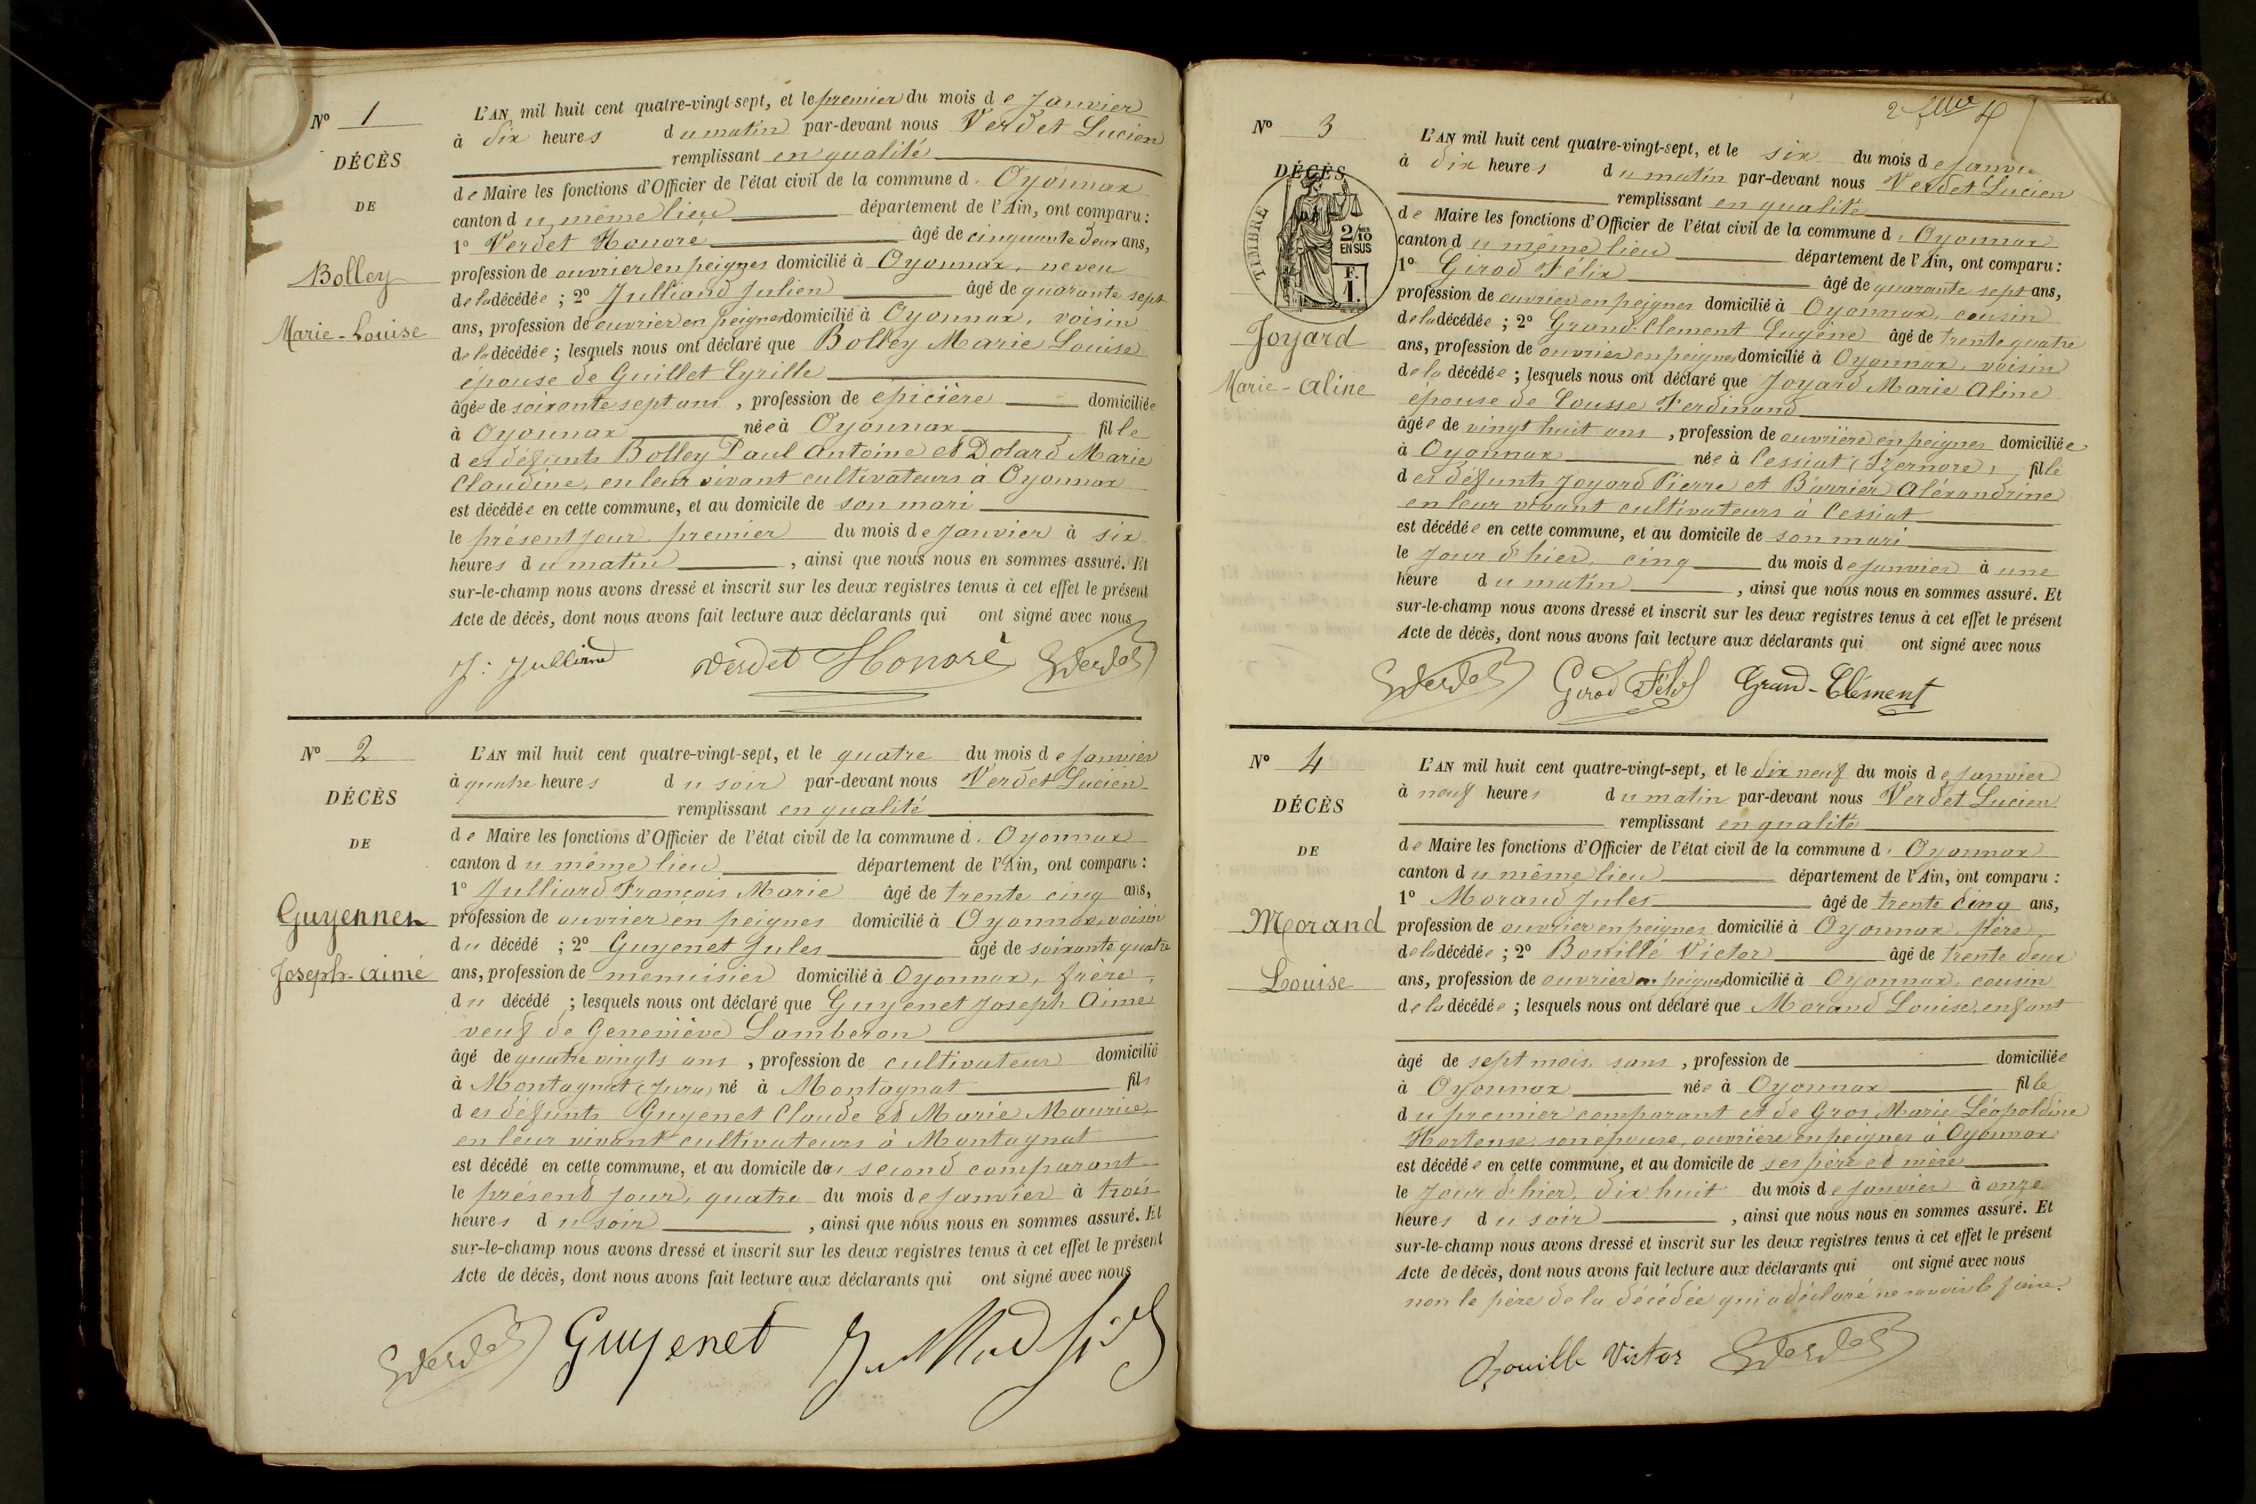 Nº 1
DÉCÈS
DE
Bolley
Marie-Louise
L'AN mil huit cent quatre-vingt-sept, et le premier du mois de Janvier
à dix heures du matin par-devant nous Verdet Lucien
remplissant en qualité
de Maire les fonctions d'Officier de l'état civil de la commune d'Oyonnax
canton du même lieu département de l'Ain, ont comparu :
1º Verdet Honoré âgé de cinquante deux ans,
profession de ouvrier en peignes domicilié à Oyonnax, neveu
de la décédée ; 2º Julliard Julien âgé de quarante sept
ans, profession de ouvrier en peignes domicilié à Oyonnax, voisin
de la décédée ; lesquels nous ont déclaré que Bolley Marie Louise
épouse de Guillet Cyrille
âgée de soixante sept ans, profession de épicière domiciliée
à Oyonnax née à Oyonnax fille
des défunts Bolley Paul Antoine et Dolard Marie
Claudine, en leur vivant cultivateurs à Oyonnax
est décédée en cette commune, et au domicile de son mari
le présent jour premier du mois de Janvier à six
heures du matin, ainsi que nous nous en sommes assuré. Et
sur-le-champ nous avons dressé et inscrit sur les deux registres tenus à cet effet le présent
Acte de décès, dont nous avons fait lecture aux déclarants qui ont signé avec nous
J. Julliard Verdet Honoré Verdet
Nº 2
DÉCÈS
DE
Guyennet
Joseph-Aimé
L'AN mil huit cent quatre-vingt-sept, et le quatre du mois de Janvier
à quatre heures du soir par-devant nous Verdet Lucien
remplissant en qualité
de Maire les fonctions d'Officier de l'état civil de la commune d'Oyonnax
canton du même lieu département de l'Ain, ont comparu :
1º Julliard François Marie âgé de trente cinq ans,
profession de ouvrier en peignes domicilié à Oyonnax, voisin
du décédé ; 2º Guyenet Jules âgé de soixante quatre
ans, profession de menuisier domicilié à Oyonnax, frère
du décédé ; lesquels nous ont déclaré que Guyenet Joseph Aimé
veuf de Geneviève Lamberon
âgé de quatre vingts ans, profession de cultivateur domicilié
à Montagnat (Jura) né à Montagnat fils
des défunts Guyenet Claude et Marie Maurice,
en leur vivant cultivateurs à Montagnat
est décédé en cette commune, et au domicile du second comparant
le présent jour, quatre du mois de Janvier à trois
heures du soir, ainsi que nous nous en sommes assuré. Et
sur-le-champ nous avons dressé et inscrit sur les deux registres tenus à cet effet le présent
Acte de décès, dont nous avons fait lecture aux déclarants qui ont signé avec nous
Verdet Guyenet Julliard
2
Nº 3
DÉCÈS
TIMBRE
2/10
EN SUS
F.
1.
Joyard
Marie-Aline
L'AN mil huit cent quatre-vingt-sept, et le six du mois de Janvier
à dix heures du matin par-devant nous Verdet Lucien
remplissant en qualité
de Maire les fonctions d'Officier de l'état civil de la commune d'Oyonnax
canton du même lieu département de l'Ain, ont comparu :
1º Girod Félix âgé de quarante sept ans,
profession de ouvrier en peignes domicilié à Oyonnax, cousin
de la décédée ; 2º Grand-Clément Eugène âgé de trente quatre
ans, profession de ouvrier en peignes domicilié à Oyonnax, voisin
de la décédée ; lesquels nous ont déclaré que Joyard Marie Aline
épouse de Cousse Ferdinand
âgée de vingt huit ans, profession de ouvrière en peignes domiciliée
à Oyonnax née à Cessiat (Izernore) fille
des défunts Joyard Pierre et Barrier Aléxandrine
en leur vivant cultivateurs à Cessiat
est décédée en cette commune, et au domicile de son mari
le jour d'hier, cinq du mois de Janvier à une
heure du matin, ainsi que nous nous en sommes assuré. Et
sur-le-champ nous avons dressé et inscrit sur les deux registres tenus à cet effet le présent
Acte de décès, dont nous avons fait lecture aux déclarants qui ont signé avec nous
Verdet Girod Félix Grand-Clément
Nº 4
DÉCÈS
DE
Morand
Louise
L'AN mil huit cent quatre-vingt-sept, et le dix neuf du mois de Janvier
à neuf heures du matin par-devant nous Verdet Lucien
remplissant en qualité
de Maire les fonctions d'Officier de l'état civil de la commune d'Oyonnax
canton du même lieu département de l'Ain, ont comparu :
1º Morand Jules âgé de trente cinq ans,
profession de ouvrier en peignes domicilié à Oyonnax, père
de la décédée ; 2º Bouillé Victor âgé de trente deux
ans, profession de ouvrier en peignes domicilié à Oyonnax, cousin
de la décédée ; lesquels nous ont déclaré que Morand Louise, enfant
âgé de sept mois, sans, profession de domiciliée
à Oyonnax née à Oyonnax fille
du premier comparant et de Gros Marie Léopoldine
Hortense son épouse, ouvrière en peignes à Oyonnax
est décédée en cette commune, et au domicile de ses père et mère
le jour d'hier, dix huit du mois de Janvier à onze
heures du soir, ainsi que nous nous en sommes assuré. Et
sur-le-champ nous avons dressé et inscrit sur les deux registres tenus à cet effet le présent
Acte de décès, dont nous avons fait lecture aux déclarants qui ont signé avec nous
non le père de la décédée qui a déclaré ne savoir le faire.
Bouille Victor Verdet